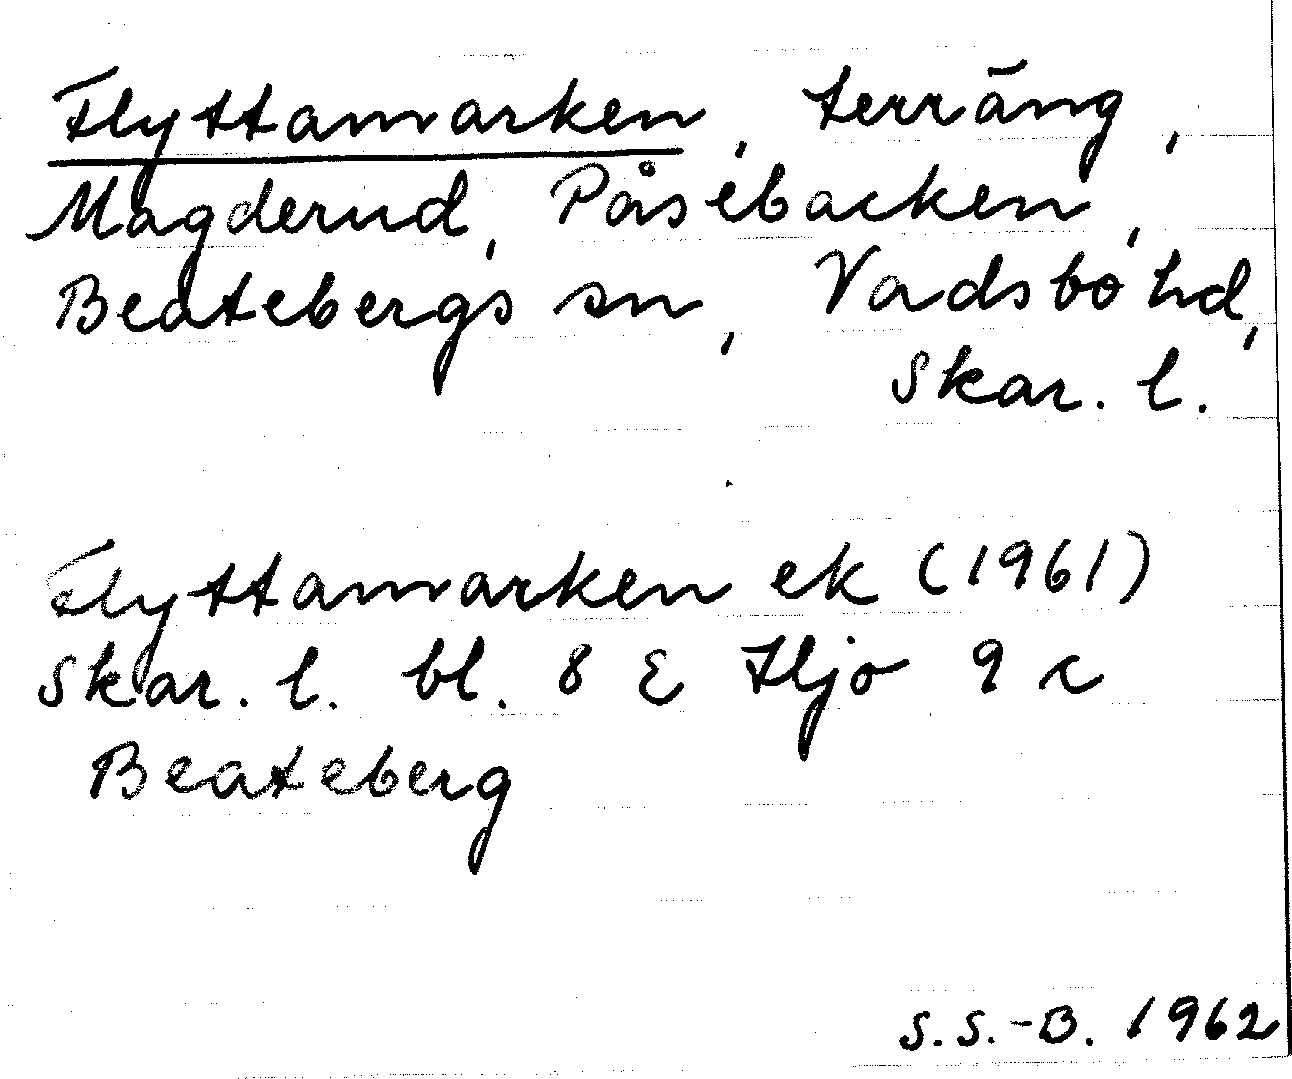 Flyttamarken, terräng,
Magderud, Påsebacken,
Beatebergs sn, Vadsbo hd,
Skar. l.
Flyttamarken ek (1961)
Skar. l. bl. 8 E Hjo 9 c
Beateberg
S.S.-B. 1962